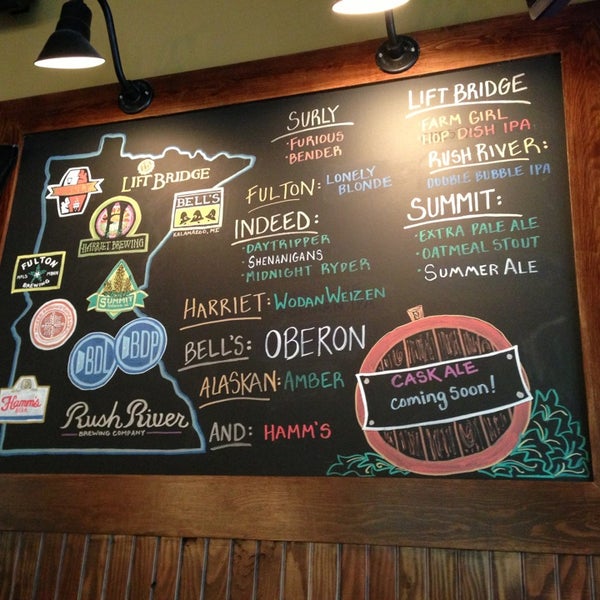 LIFT BRIDGE
BELL'S
KALAMAZOO, MI
HARRIET BREWING
FULTON
MPLS MINN
BREWING
SUMMIT
BDL
BDP
Hamm's
BEER
Rush River
BREWING COMPANY
SURLY
• FURIOUS
• BENDER
FULTON: LONELY
BLONDE
INDEED:
• DAYTRIPPER
• SHENANIGANS
• MIDNIGHT RYDER
HARRIET: WODANWEIZEN
BELL'S: OBERON
ALASKAN: AMBER
AND: HAMM'S
LIFT BRIDGE
• FARM GIRL
• HOP DISH IPA
RUSH RIVER:
• DOUBLE BUBBLE IPA
SUMMIT:
• EXTRA PALE ALE
• OATMEAL STOUT
• SUMMER ALE
CASK ALE
COMING SOON!